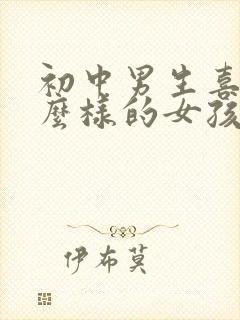 初中男生喜
麼樣的女孩
伊布莫